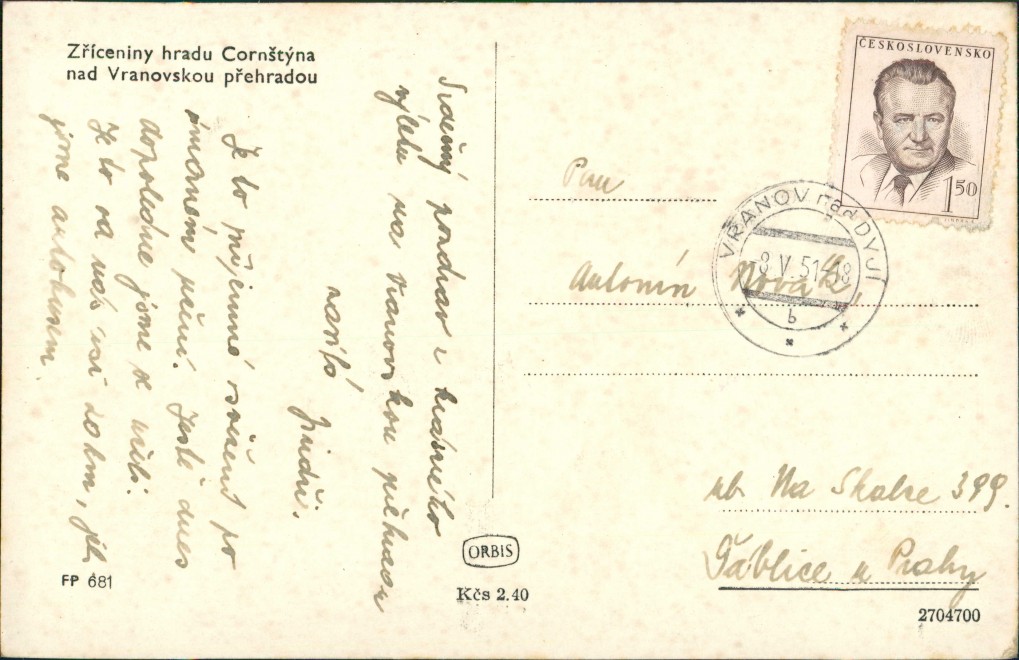 Zříceniny hradu Cornštýna
nad Vranovskou přehradou
Srdečný pozdrav z krásného
výletu na vranovskou přehradu
Jindři.
Je to příjemné po
Ještě dnes
dopoledne jsme se učili.
Je to na nás
jsme autobusem.
FP 681
ORBIS
Kčs 2.40
ČESKOSLOVENSKO
1 50
VRANOV nad DYJÍ
8.V.51-18
b
Pan
Antonín Novák,
ul. Na Skalce 399.
Ďáblice u Prahy
2704700